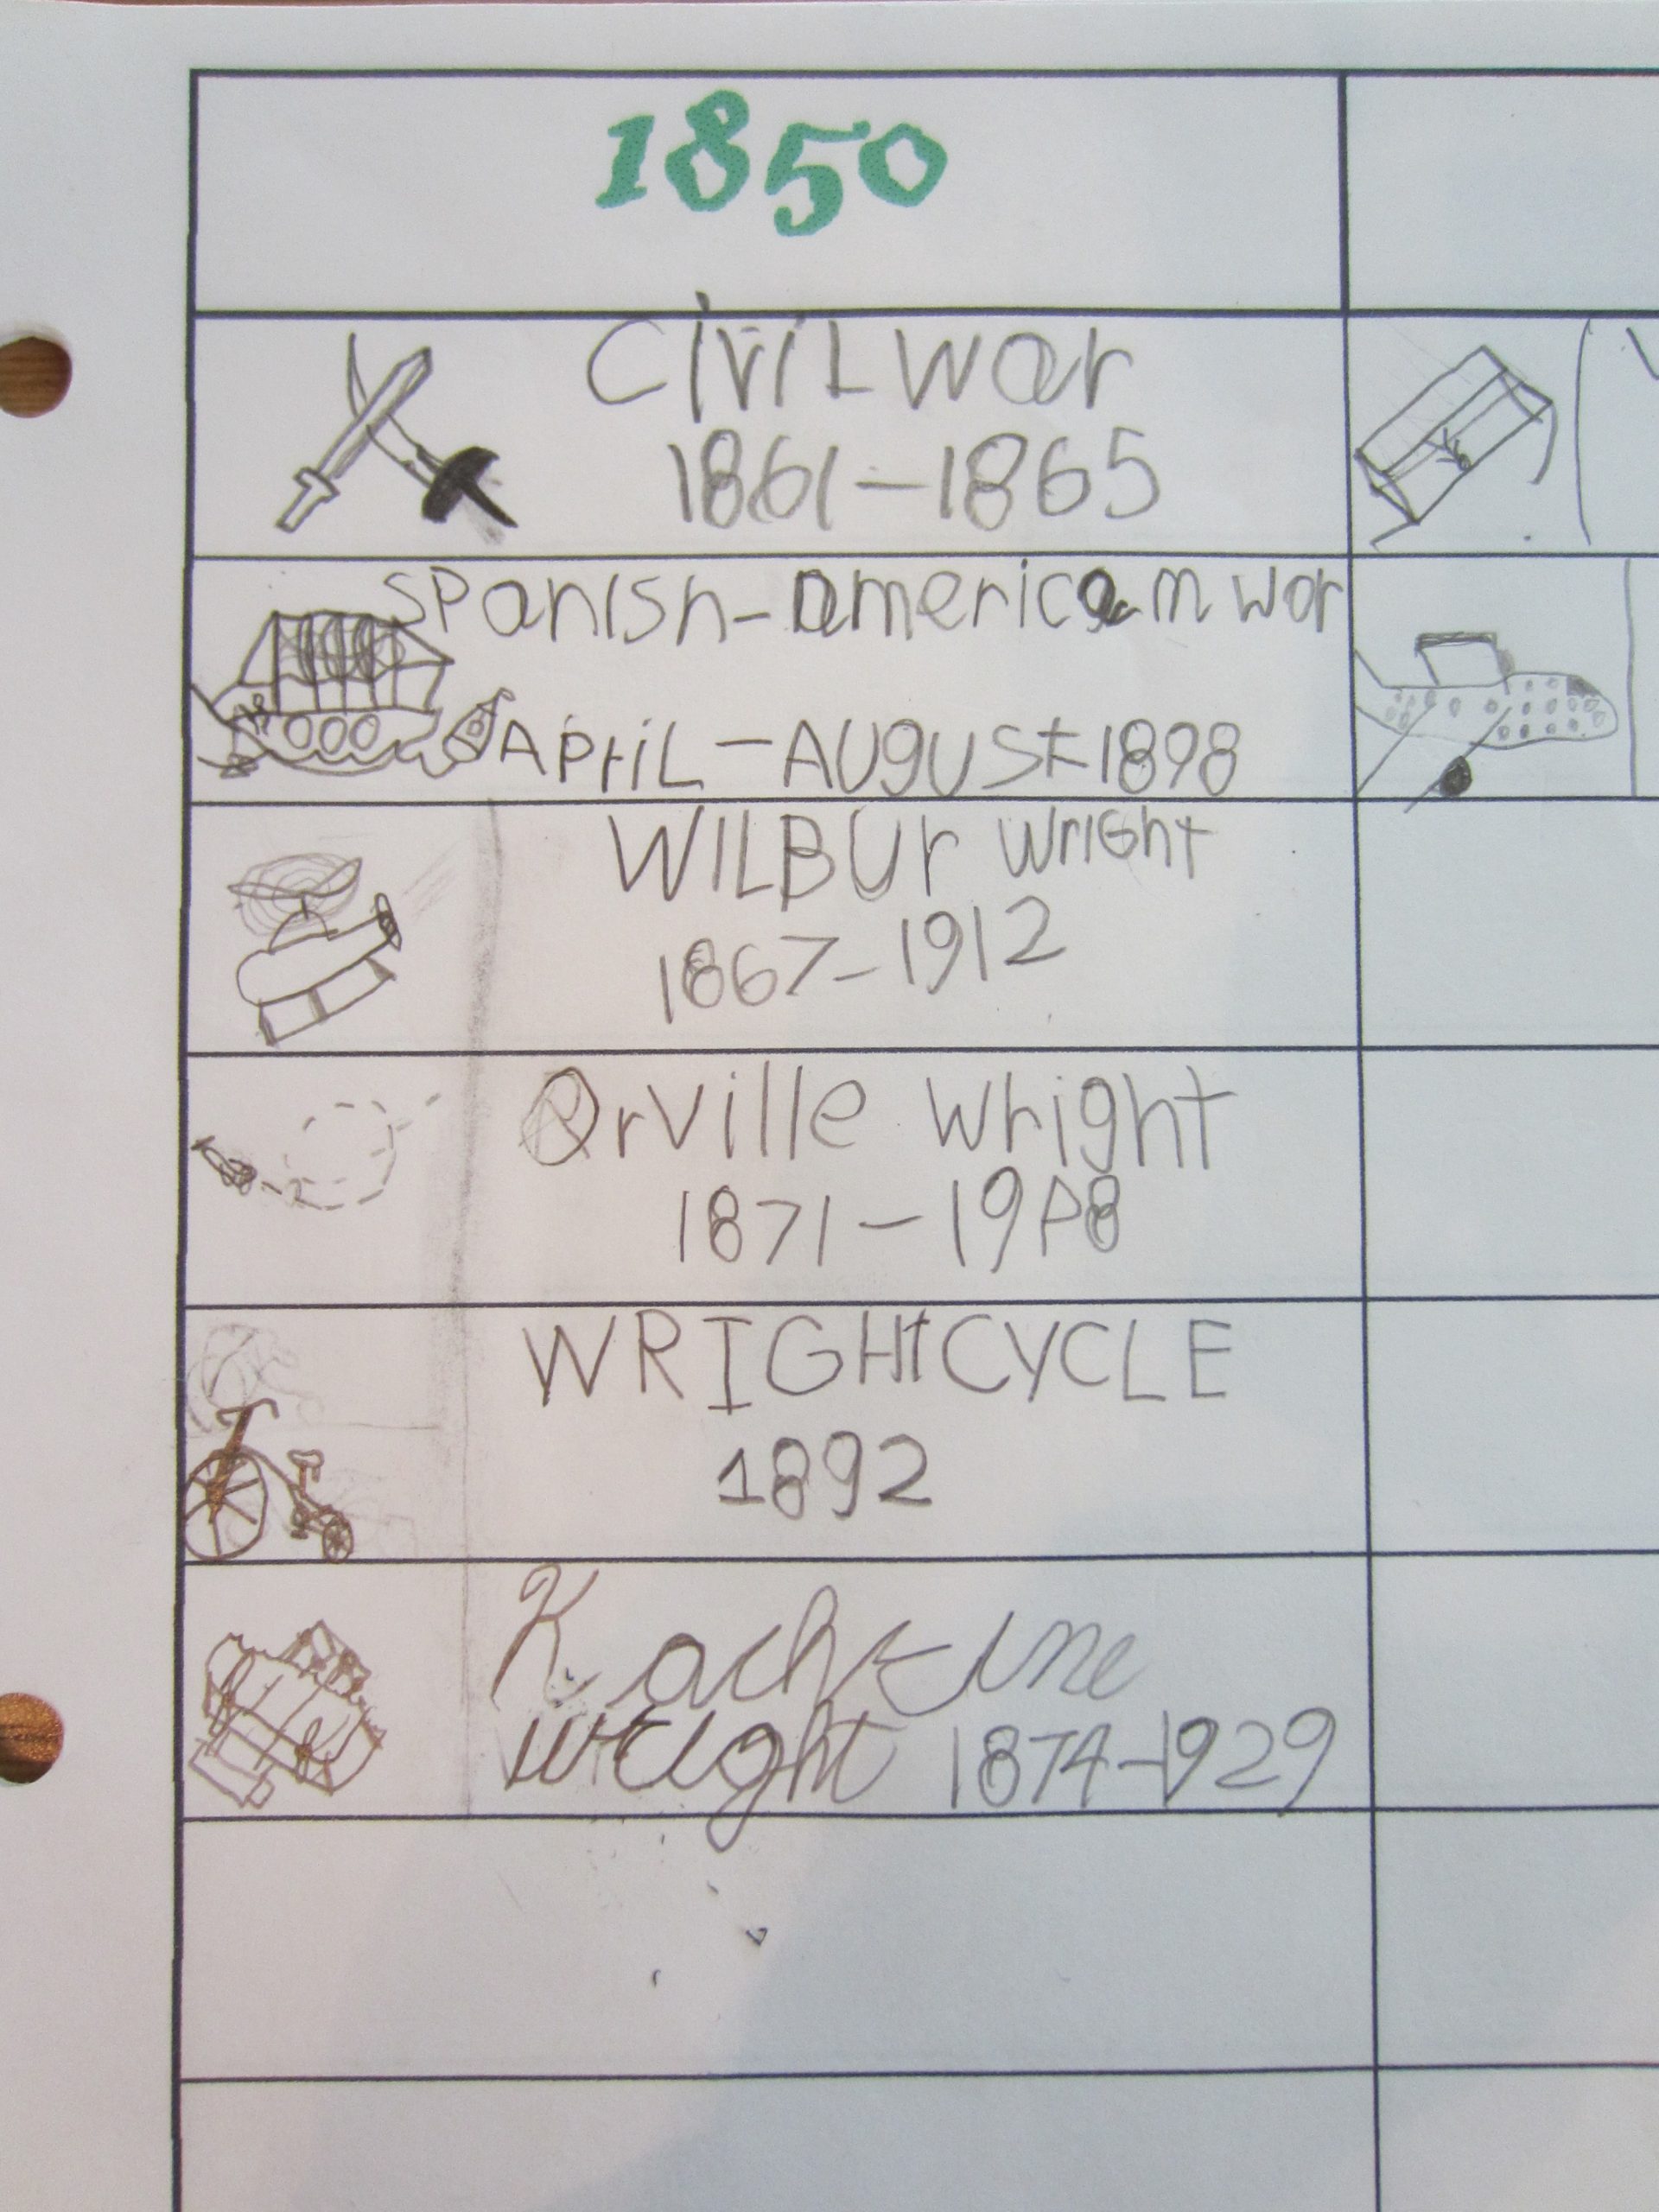 1850
Civil war
1861-1865
Spanish-american war
APriL-AUgUSt-1898
WILBUr WrIGht
1867-1912
Orville Wright
1871-1948
WRIGHtCYCLE
1892
Kathrine
wright 1874-1929